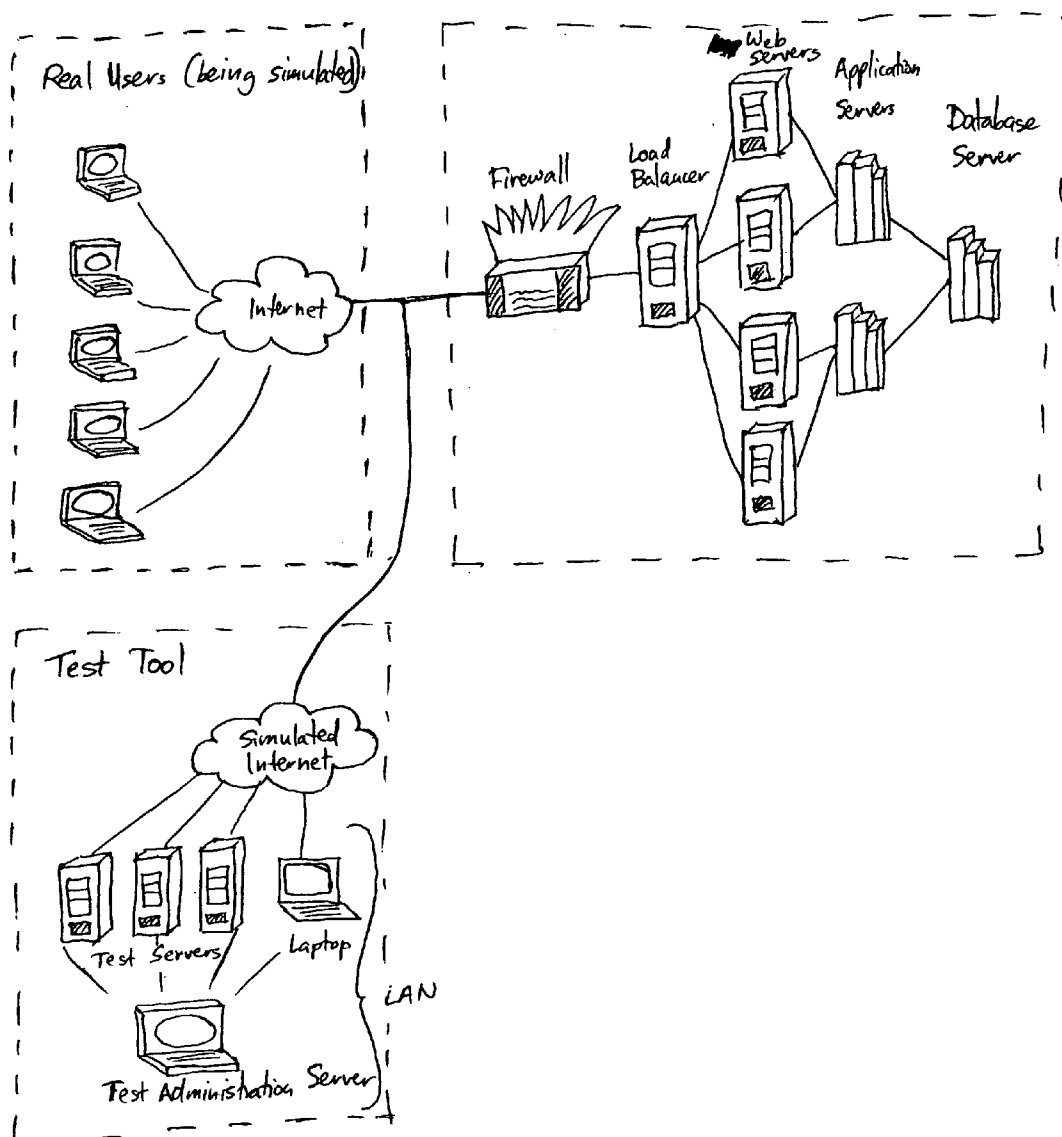 Real Users (being simulated)
Internet
Firewall
Load
Balancer
Web
Servers
Application
Servers
Database
Server
Test Tool
Simulated
Internet
Test Servers
Laptop
LAN
Test Administration Server